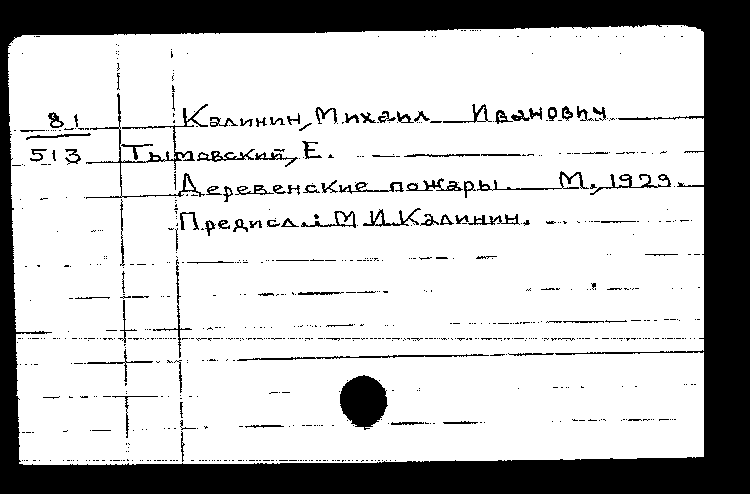 81 Калинин, Михаил Иванович
513 Тымовский, Е.
Деревенские пожары. М., 1929.
Предисл.: М.И.Калинин.